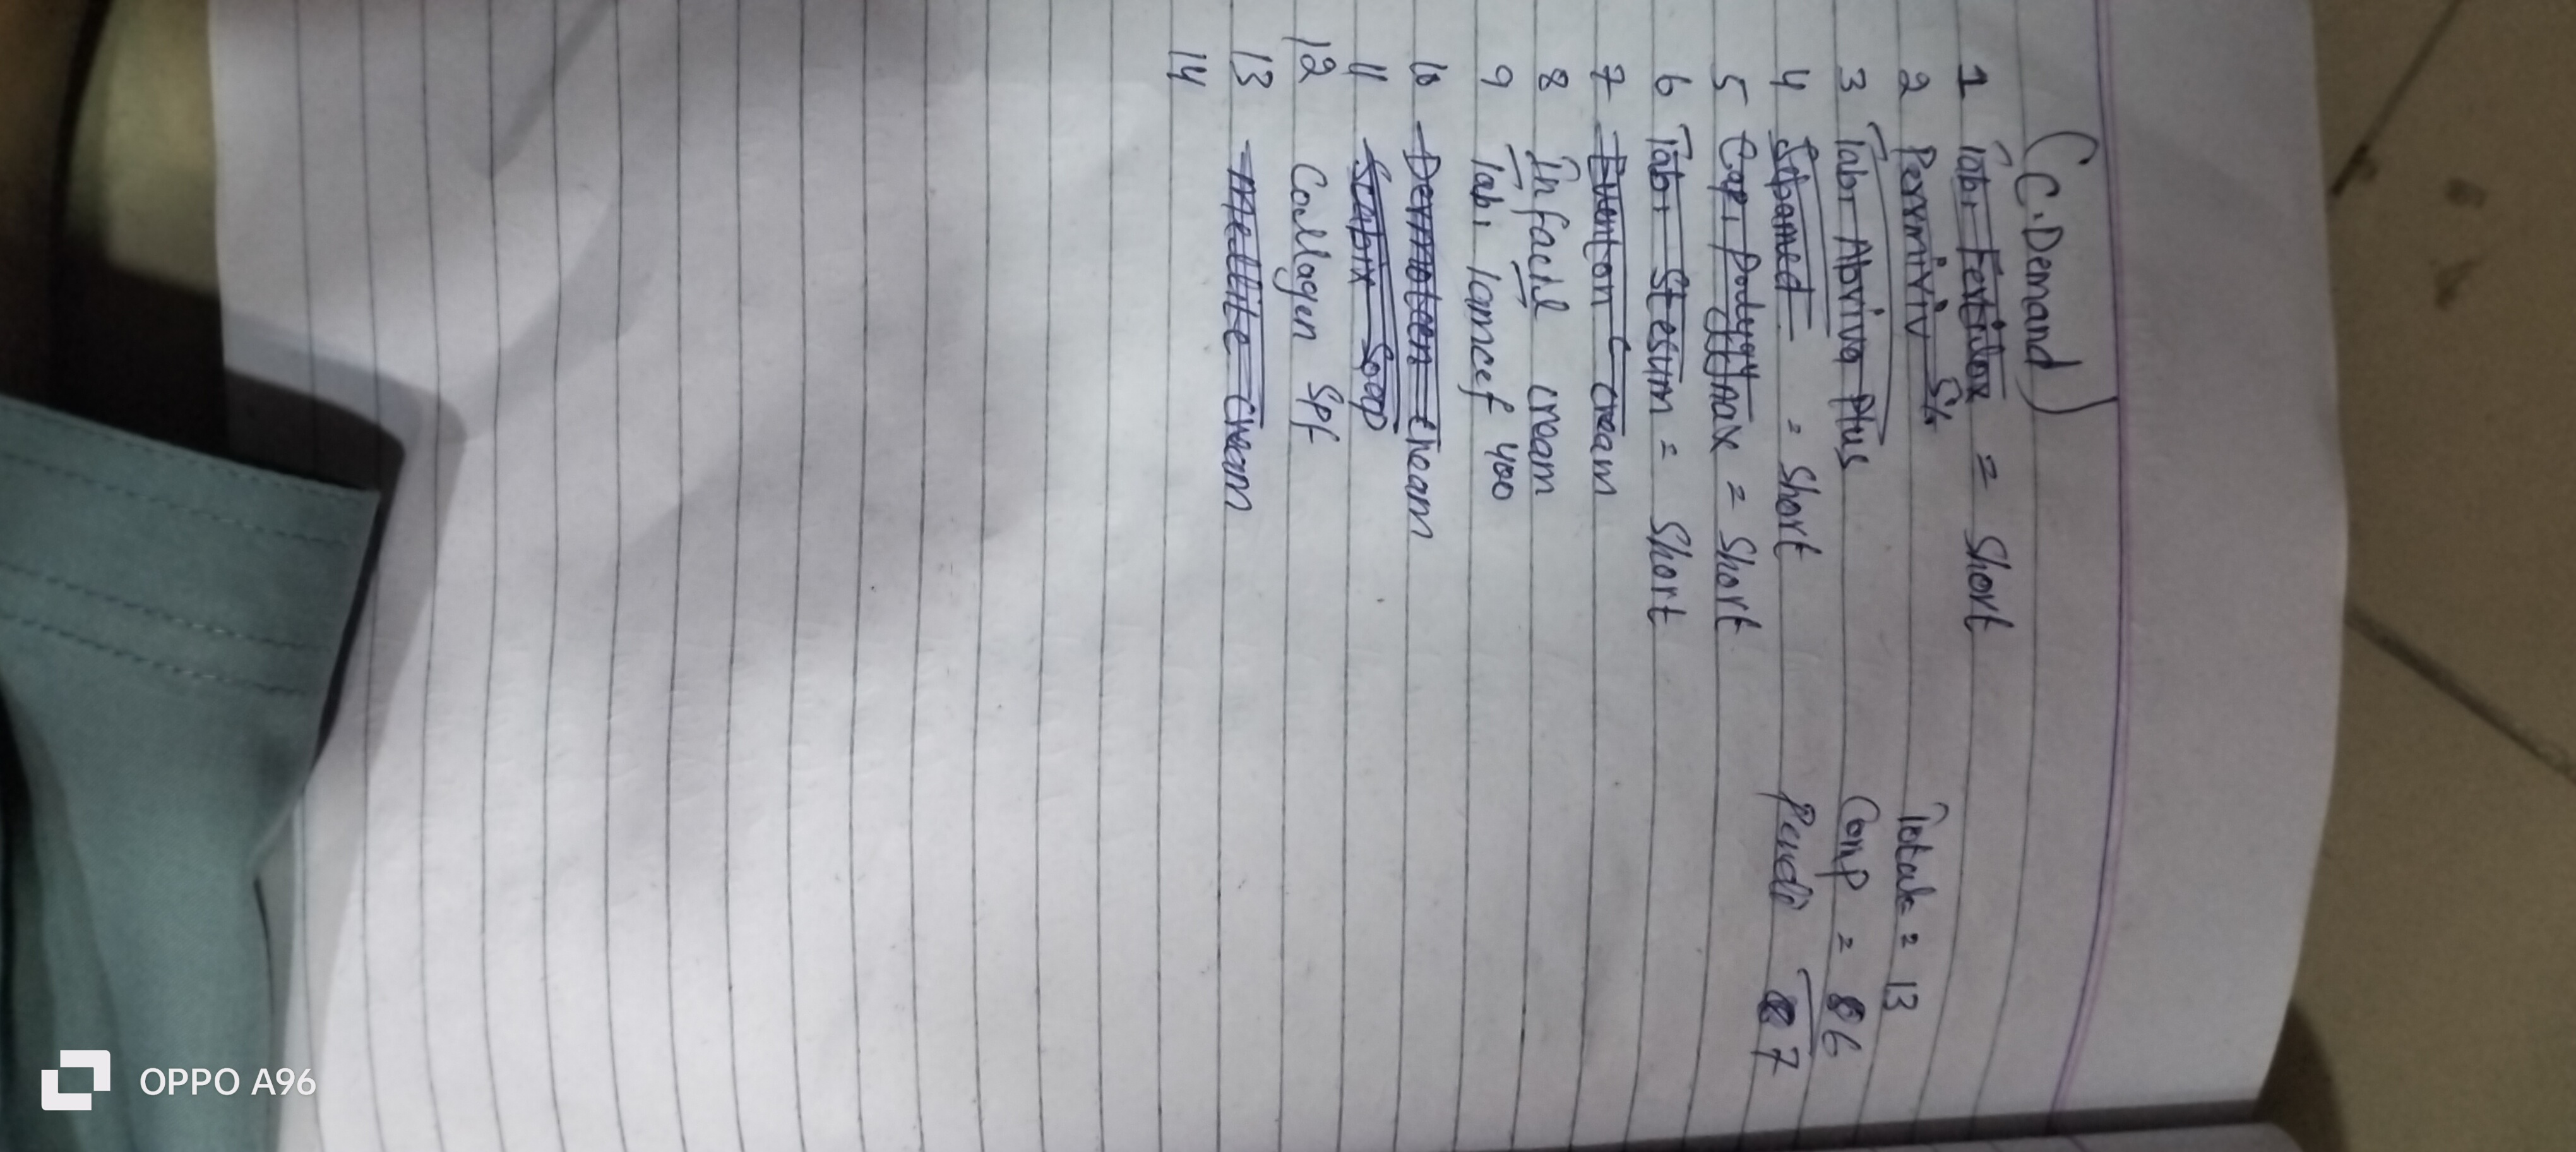 (C.Demand)
1 Tab: Fertilox = Short
2 Permiriv S/s
3 Tab: Abriva Plus
4 Sebamed = Short
5 Cap: = Short
6 Tab: Stesum = Short
7 Eventon C cream
8 Infacil cream
9 Tab: Tamcef 400
10 Dermoteen cream
11 Scabix Soap
12 Collagen Spf
13 Mellite cream
14
Total = 13
Comp = 6
Pendi 7
OPPO A96